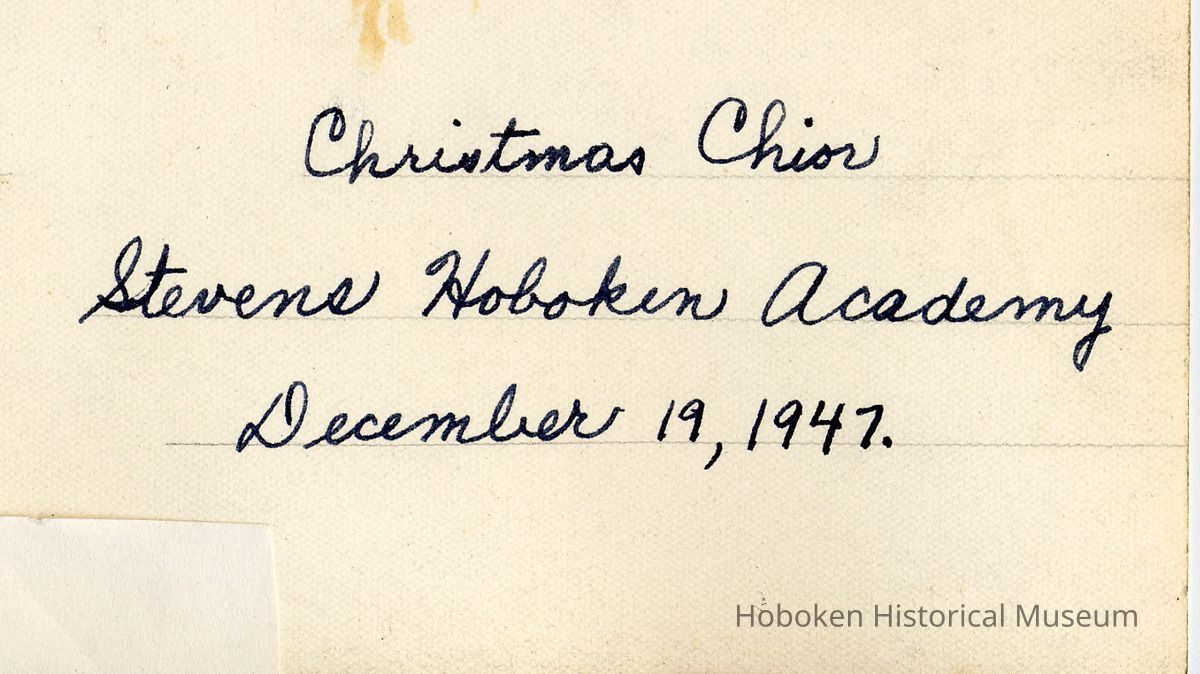 Christmas Chior
Stevens Hoboken Academy
December 19, 1947.
Hoboken Historical Museum